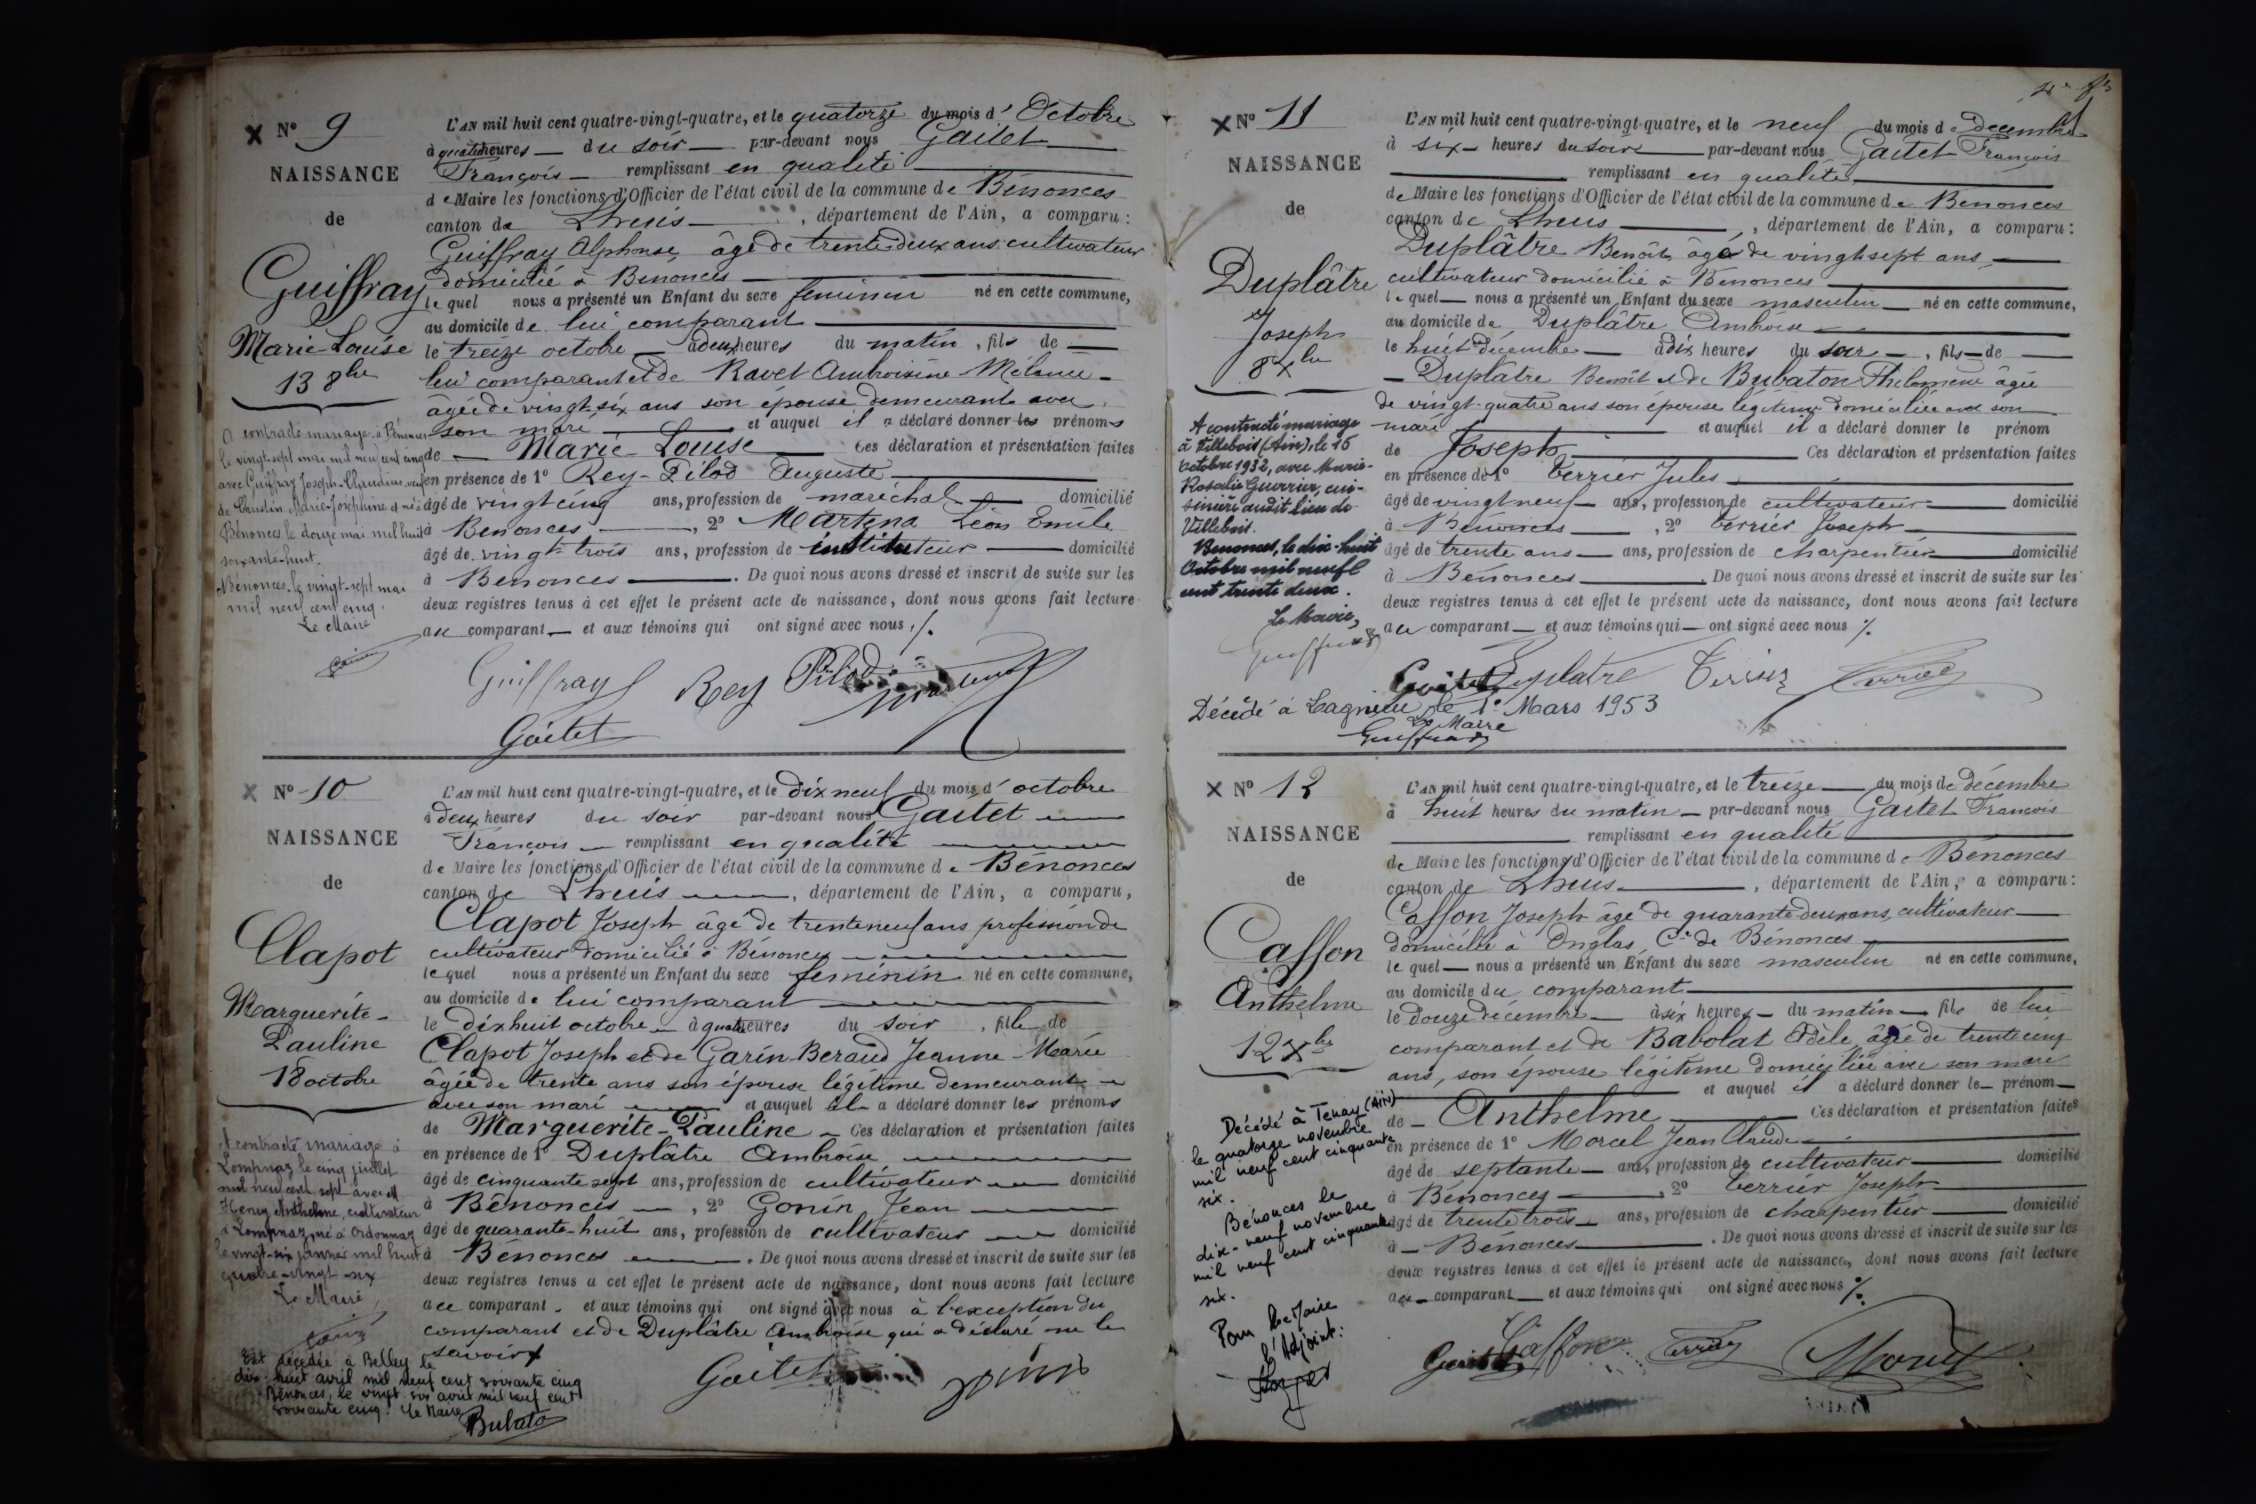 X N° 9
NAISSANCE
de
Guiffray
Marie-Louise
13 8bre
A contracté mariage à Bénonces
le vingt-sept mai mil neuf cent cinq
avec Guiffray Joseph-Claudius, veuf
de Marie-Joséphine et né à
Bénonces le douze mai mil huit
soixante-huit.
Bénonces, le vingt-sept mai
mil neuf cent cinq.
Le Maire
L'AN mil huit cent quatre-vingt-quatre, et le quatorze du mois d'Octobre
à quatre heures du soir par-devant nous Gaitet
François remplissant en qualité
de Maire les fonctions d'Officier de l'état civil de la commune de Bénonces
canton de Lhuis, département de l'Ain, a comparu :
Guiffray Alphonse, âgé de trente deux ans cultivateur
domicilié à Benonces
lequel nous a présenté un Enfant du sexe feminin né en cette commune,
au domicile de lui comparant
le treize octobre à deux heures du matin, fils de
lui comparant et de Ravet Ambroisine Mélanie
âgée de vingt six ans son épouse demeurant avec
son mari et auquel il a déclaré donner les prénoms
de Marie Louise Ces déclaration et présentation faites
en présence de 1° Rey-Pilod Auguste
âgé de vingt cinq ans, profession de maréchal domicilié
à Benonces, 2° Martena Léon Emile
âgé de vingt trois ans, profession de instituteur domicilié
à Benonces. De quoi nous avons dressé et inscrit de suite sur les
deux registres tenus à cet effet le présent acte de naissance, dont nous avons fait lecture
au comparant et aux témoins qui ont signé avec nous ./.
Guiffray Rey Pilod
Gaitet
X N° 10
NAISSANCE
de
Clapot
Marguerite-
Pauline
18 octobre
A contracté mariage à
Lompnaz le cinq juillet
mil neuf cent sept avec M
Henry Anthelme, cultivateur
à Lompnaz, né à Ordonnaz
le vingt-six janvier mil huit
quatre-vingt-six
Le Maire
Est décédée à Belley le
dix-huit avril mil neuf cent soixante cinq
Bénonces, le vingt six avril mil neuf cent
soixante cinq. Le Maire
Bubato
L'AN mil huit cent quatre-vingt-quatre, et le dix neuf du mois d'octobre
à deux heures du soir par-devant nous Gaitet
François remplissant en qualité
de Maire les fonctions d'Officier de l'état civil de la commune de Bénonces
canton de Lhuis, département de l'Ain, a comparu,
Clapot Joseph âgé de trente neuf ans profession de
cultivateur domicilié à Bénonces
lequel nous a présenté un Enfant du sexe féminin né en cette commune,
au domicile de lui comparant
le dix huit octobre à quatre heures du soir, fille de
Clapot Joseph et de Garin-Beraud Jeanne-Marie
âgée de trente ans son épouse légitime demeurant
avec son mari et auquel il a déclaré donner les prénoms
de Marguerite-Pauline Ces déclaration et présentation faites
en présence de 1° Duplâtre Ambroise
âgé de cinquante sept ans, profession de cultivateur domicilié
à Bénonces, 2° Gonin Jean
âgé de quarante-huit ans, profession de cultivateur domicilié
à Bénonces. De quoi nous avons dressé et inscrit de suite sur les
deux registres tenus à cet effet le présent acte de naissance, dont nous avons fait lecture
au comparant et aux témoins qui ont signé avec nous à l'exception du
comparant et de Duplâtre Ambroise qui a déclaré ne le
savoir
Gaitet gonin
X N° 11
NAISSANCE
de
Duplâtre
Joseph
8 Xbre
A contracté mariage
à Villebois (Ain), le 16
octobre 1932, avec Marie-
Rosalie Guerrier, cui-
sinière audit lieu de
Villebois.
Benonces, le dix-huit
Octobre mil neuf
cent trente deux.
Le Maire,
Décédé à Lagnieu le 1er Mars 1953
Le Maire
L'AN mil huit cent quatre-vingt-quatre, et le neuf du mois de Décembre
à six heures du soir par-devant nous Gaitet François
remplissant en qualité
de Maire les fonctions d'Officier de l'état civil de la commune de Benonces
canton de Lhuis, département de l'Ain, a comparu :
Duplâtre Benoît, âgé de vingt sept ans
cultivateur domicilié à Bénonces
lequel nous a présenté un Enfant du sexe masculin né en cette commune,
au domicile de Duplâtre Ambroise
le huit décembre à dix heures du soir, fils de
Duplâtre Benoît et de Bubaton Philomène âgée
de vingt-quatre ans son épouse légitime domiciliée avec son
mari et auquel il a déclaré donner le prénom
de Joseph Ces déclaration et présentation faites
en présence de 1° Terrier Jules
âgé de vingt neuf ans, profession de cultivateur domicilié
à Bénonces, 2° Terrier Joseph
âgé de trente ans ans, profession de charpentier domicilié
à Bénonces. De quoi nous avons dressé et inscrit de suite sur les
deux registres tenus à cet effet le présent acte de naissance, dont nous avons fait lecture
au comparant et aux témoins qui ont signé avec nous ./.
Gaitet Duplatre Terrier Terrier
X N° 12
NAISSANCE
de
Caffon
Anthelme
12 Xbre
Décédé à Tenay (Ain)
le quatorze novembre
mil neuf cent cinquante
six.
Bénonces le
dix-neuf novembre
mil neuf cent cinquante
six.
Pour le Maire
l'Adjoint :
L'AN mil huit cent quatre-vingt-quatre, et le treize du mois de décembre
à huit heures du matin par-devant nous Gaitet François
remplissant en qualité
de Maire les fonctions d'Officier de l'état civil de la commune de Bénonces
canton de Lhuis, département de l'Ain, a comparu :
Caffon Joseph âgé de quarante deux ans, cultivateur
domicilié à Onglas, Cne de Bénonces
lequel nous a présenté un Enfant du sexe masculin né en cette commune,
au domicile du comparant
le douze décembre à six heures du matin fils de lui
comparant et de Babolat Adèle, âgée de trente cinq
ans, son épouse légitime domiciliée avec son mari
et auquel il a déclaré donner le prénom
de Anthelme Ces déclaration et présentation faites
en présence de 1° Morcel Jean Claude
âgé de septante ans, profession de cultivateur domicilié
à Bénonces, 2° Terrier Joseph
âgé de trente trois ans, profession de charpentier domicilié
à Bénonces. De quoi nous avons dressé et inscrit de suite sur les
deux registres tenus à cet effet le présent acte de naissance, dont nous avons fait lecture
au comparant et aux témoins qui ont signé avec nous ./.
Gaitet Caffon Terrier